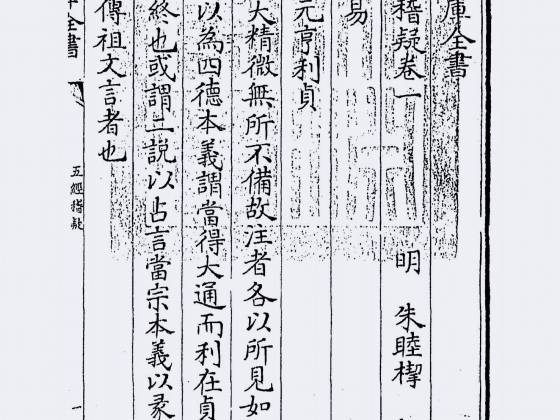 庫全書
稽疑卷一
明 朱睦㮮
易
元亨利貞
大精微無所不備故注者各以所見如
以為四德本義謂當得大通而利在貞
終也或謂二說以占言當宗本義以彖
傳祖文言者也
全書
五經稽疑
一